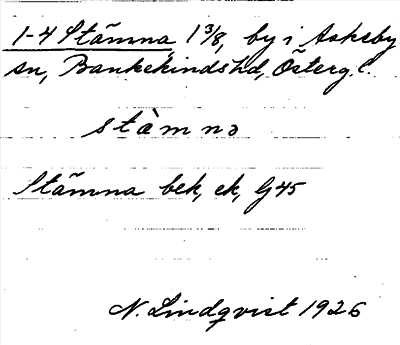 1-4 Stämna, 1 3/8, by i Askeby
sn, Bankekinds hd, Österg. l.
stàmnə
Stämna bek, ek, G 45
N. Lindqvist 1926